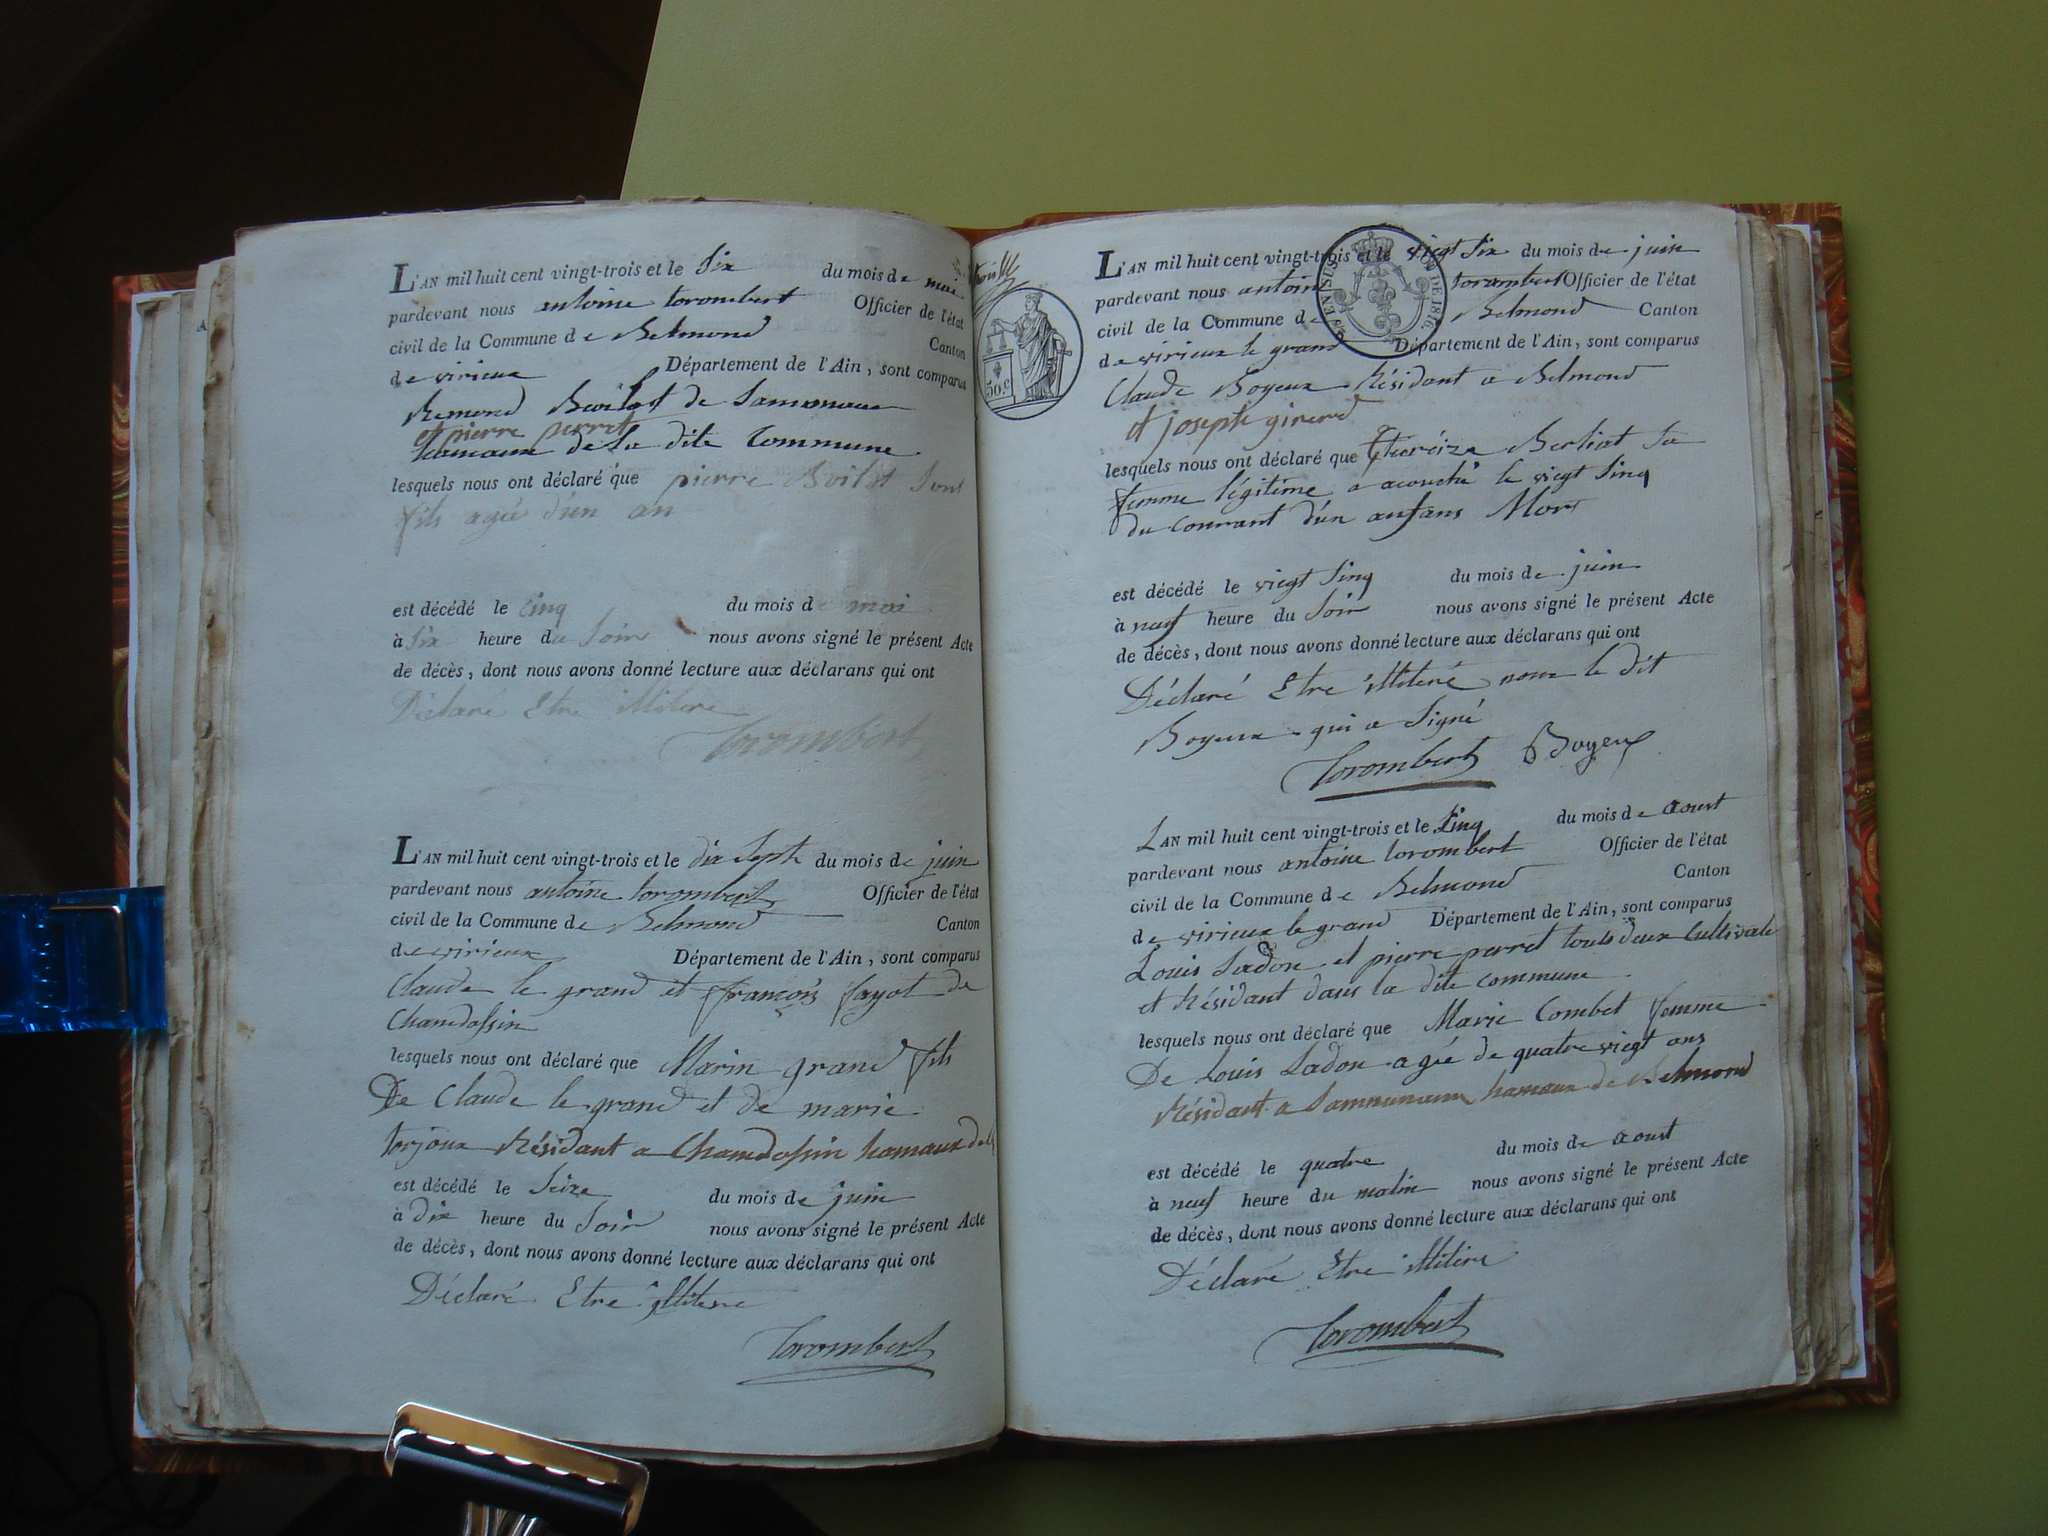 L'AN mil huit cent vingt-trois et le Six du mois de mai
pardevant nous antoine torombert Officier de l'état
civil de la Commune de Belmond Canton
de virieux Département de l'Ain, sont comparus
Remond Boillot de Sammonaux
et pierre perret
hamaux de la dite Commune
lesquels nous ont déclaré que pierre Boillot Sont
fils agée d'un an
est décédé le cinq du mois de mai
à Six heure du Soir nous avons signé le présent Acte
de décès, dont nous avons donné lecture aux déclarans qui ont
Déclaré Etre illitere
torombert
L'AN mil huit cent vingt-trois et le dix Sept du mois de juin
pardevant nous antoine torombert Officier de l'état
civil de la Commune de Belmond Canton
de virieux Département de l'Ain, sont comparus
Claude le grand et françois fayot de
Chamdossin
lesquels nous ont déclaré que Marin grand fils
De Claude le grand et de marie
torjoux Résidant a Chamdossin hamaux de
est décédé le Seize du mois de juin
à dix heure du Soir nous avons signé le présent Acte
de décès, dont nous avons donné lecture aux déclarans qui ont
Déclaré Etre illitere
torombert
50 c.
L'AN mil huit cent vingt-trois et le viegt Six du mois de juin
pardevant nous antoine torambert Officier de l'état
civil de la Commune de Belmond Canton
de virieux le grand Département de l'Ain, sont comparus
EN SUS DE 1816
Claude Boyeux Résidant a Belmond
et joseph girerd
lesquels nous ont déclaré que thereize Berliot Sa
femme légitime a acouché le viegt Sinq
du courant d'un anfans Mort
est décédé le viegt Sinq du mois de juin
à neuf heure du Soir nous avons signé le présent Acte
de décès, dont nous avons donné lecture aux déclarans qui ont
Déclaré Etre illiteré nous le dit
Boyeux qui a Signé
torombert Boyeux
L'AN mil huit cent vingt-trois et le Sinq du mois de aoust
pardevant nous antoine torombert Officier de l'état
civil de la Commune de Belmond Canton
de virieux le grand Département de l'Ain, sont comparus
Louis Ladou et pierre perret touts deux Cultivate
et Résidant dans la dite commune
lesquels nous ont déclaré que Marie Combet femme
De Louis Ladou agée de quatre viegt ans
Résidant a Sammonaux hamaux de Belmond
est décédé le quatre du mois de aoust
à neuf heure du matin nous avons signé le présent Acte
de décès, dont nous avons donné lecture aux déclarans qui ont
Déclaré Etre illitere
torombert